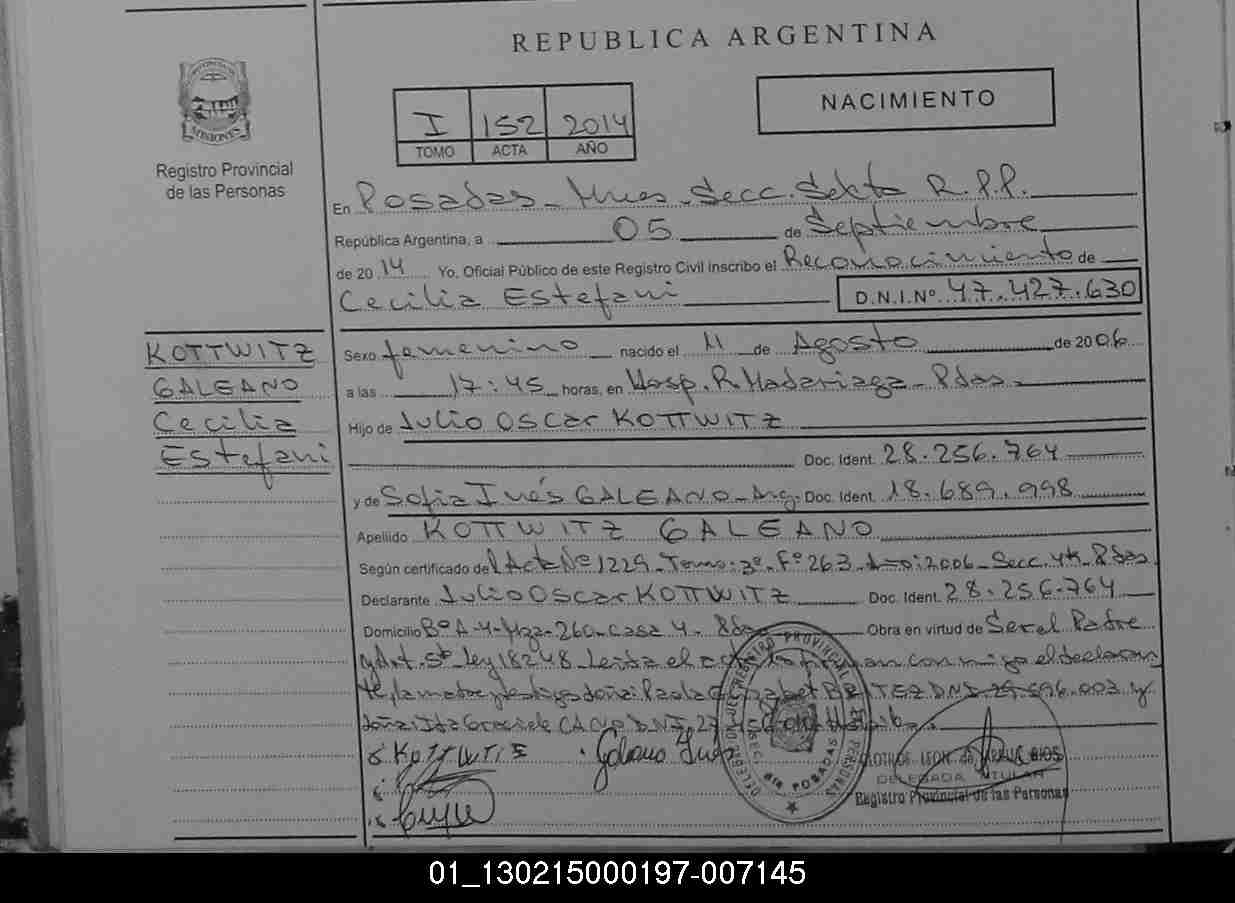 REPUBLICA ARGENTINA
PROVINCIA DE
MISIONES
Registro Provincial
de las Personas
I 152 2014
TOMO ACTA AÑO
NACIMIENTO
En Posadas - Mnes. Secc. Sexta R.P.P.
República Argentina, a 05 de Septiembre
de 2014 Yo. Oficial Público de este Registro Civil inscribo el Reconocimiento de
Cecilia Estefani D.N.I.Nº 47.427.630
KOTTWITZ
GALEANO
Cecilia
Estefani
Sexo femenino nacido el 11 de Agosto de 2006
a las 17:45 horas, en Hosp. R. Madariaga - Pdas.
Hijo de Julio Oscar KOTTWITZ
Doc. Ident. 28.256.764
y de Sofia Inés GALEANO - Arg. Doc. Ident. 18.689.998
Apellido KOTTWITZ GALEANO
Según certificado del Acta Nº 1229 - Tomo: 3º - Fº 263 Año: 2006 - Secc. 4ta Pdas
Declarante Julio Oscar KOTTWITZ Doc. Ident. 28.256.764
Domicilio Bº A-4-Mza-260-Casa 4. Pdas Obra en virtud de Ser el Padre
y Art. 5to ley 18248 Leida el acta la firman conmigo el declaran
te, la madre y testigos doña: Paola BRITEZ DNI 003 y
doña: Ita Graciela CANO DNI
KOTTWITZ Galeano Ines
DELEGACION DEL REGISTRO PROVINCIAL DE LAS PERSONAS
SEC. 6ta POSADAS
LEON
DELEGADA TITULAR
Registro Provincial de las Personas
01_130215000197-007145